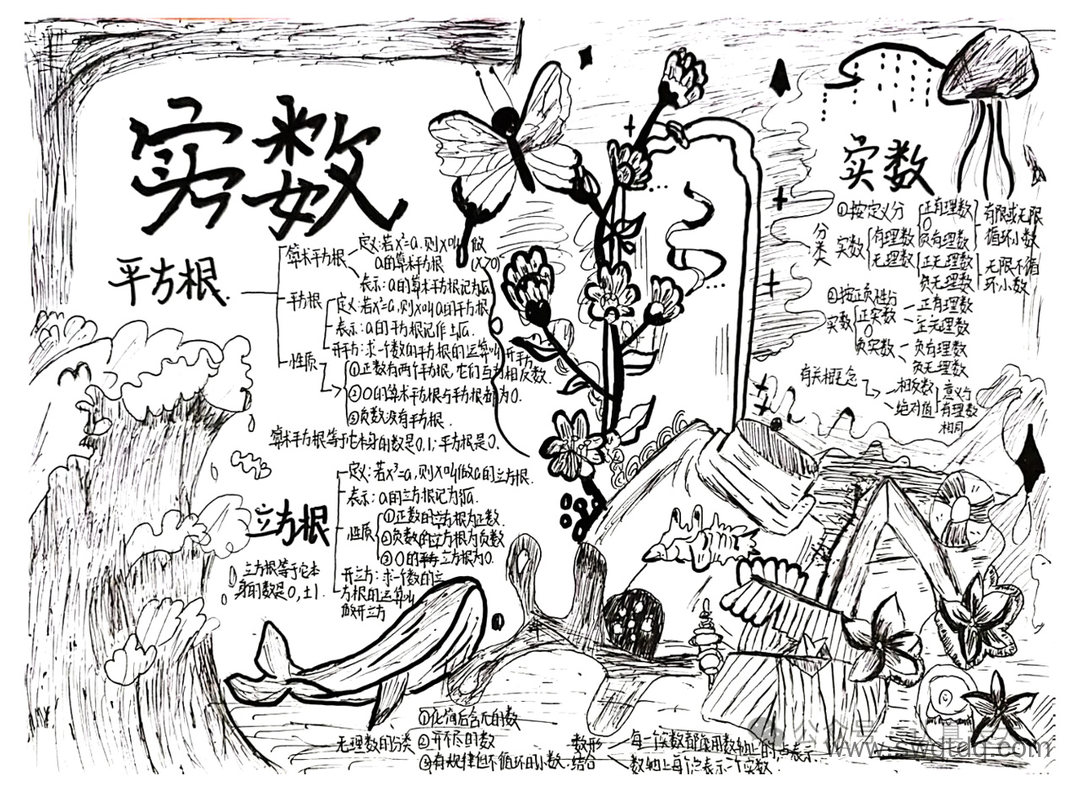 实数
平方根
算术平方根
定义:若x²=a,则x叫做
a的算术平方根 (x≥0)
表示:a的算术平方根记为√a.
平方根
定义:若x²=a,则x叫a的平方根.
表示:a的平方根记作±√a.
开平方:求一个数的平方根的运算叫开平方
性质
①正数有两个平方根,它们互为相反数.
②0的算术平方根与平方根都为0.
③负数没有平方根.
算术平方根等于它本身的数是0,1;平方根是0.
立方根
定义:若x³=a,则x叫做a的立方根.
表示:a的立方根记为∛a.
性质
①正数的立方根为正数.
②负数的立方根为负数
③0的立方根为0.
开立方:求一个数的立
方根的运算叫
做开立方
立方根等于它本
身的数是0,±1.
实数
分类
①按定义分
实数
有理数
正有理数
0
负有理数
有限或无限
循环小数
无理数
正无理数
负无理数
无限不循
环小数
②按正负性分
实数
正实数
正有理数
正无理数
0
负实数
负有理数
负无理数
有关概念
相反数
绝对值
意义与
有理数
相同
无理数的分类
①化简后含π的数
②开不尽的数
③有规律但不循环的小数.
数形
结合
每一个实数都能用数轴上的一点表示.
数轴上每个点表示一个实数.
公众号
www.swdtdq.com